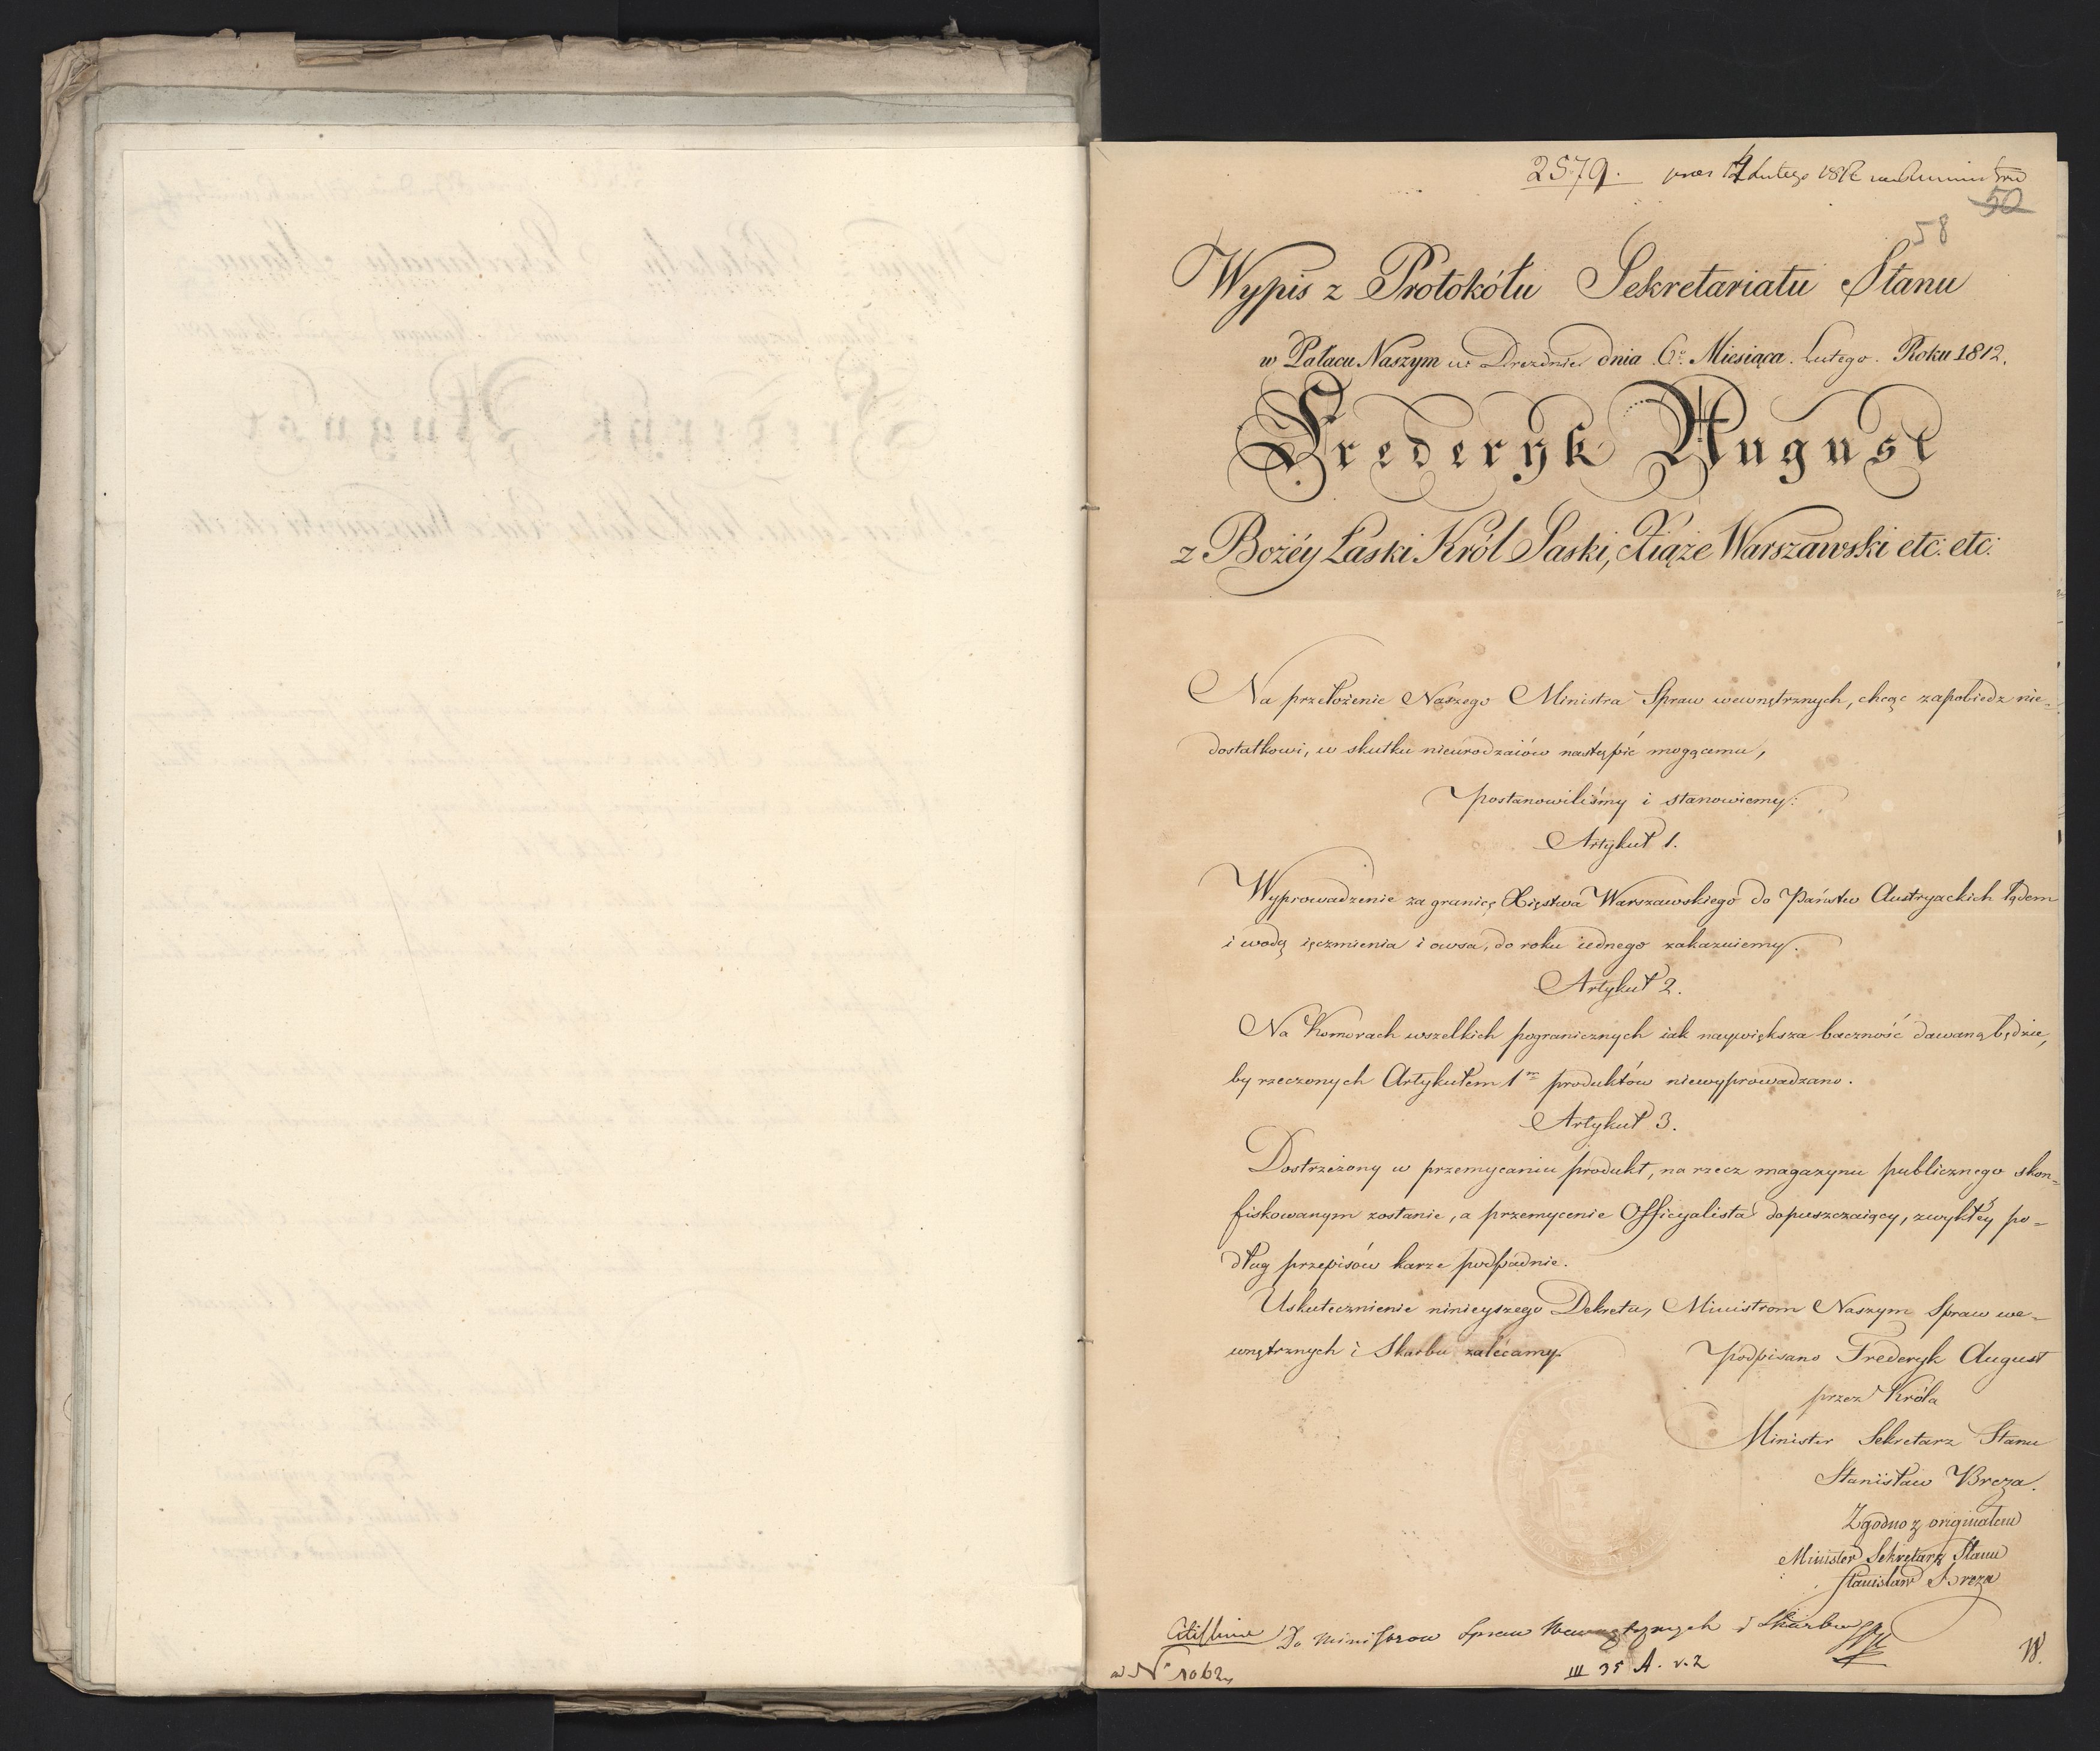 2579. 12 Lutego 1812
50
58
Wypis z Protokółu Sekretariatu Stanu
w Pałacu Naszym w Dreznie dnia 6º Miesiąca Lutego. Roku 1812.
Frederyk August
z Bożéy Łaski Król Saski, Xiąże Warszawski etc: etc:
Na przełożenie Naszego Ministra Spraw wewnętrznych, chcąc zapobiedz nie=
dostatkowi, w skutku nieurodzaiów nastąpić mogącemu,
postanowiliśmy i stanowiemy:
Artykuł 1.
Wyprowadzenie za granicę Xięstwa Warszawskiego do Państw Austryackich lądem
i wodą ięczmienia i owsa, do roku iednego zakazuiemy.
Artykuł 2.
Na Komorach wszelkich pogranicznych iak naywiększa baczność dawaną będzie,
by rzeczonych Artykułem 1m produktów niewyprowadzano.
Artykuł 3.
Dostrzeżony w przemycaniu produkt, na rzecz magazynu publicznego skon=
fiskowanym zostanie, a przemycenie Officyalista dopuszczaiący, zwykłéy po=
dług przepisów karze podpadnie.
Uskutecznienie ninieyszego Dekretu, Ministrom Naszym Spraw we=
wnętrznych i Skarbu zalécamy.
podpisano Frederyk August
przez Króla
Minister Sekretarz Stanu
Stanisław Breza.
Zgodno z originałem
Minister Sekretarz Stanu
Stanisław Breza
Do Ministrow Spraw Wewnętrznych i Skarbu
a Nº 1062
III 35 A. v. 2
W.